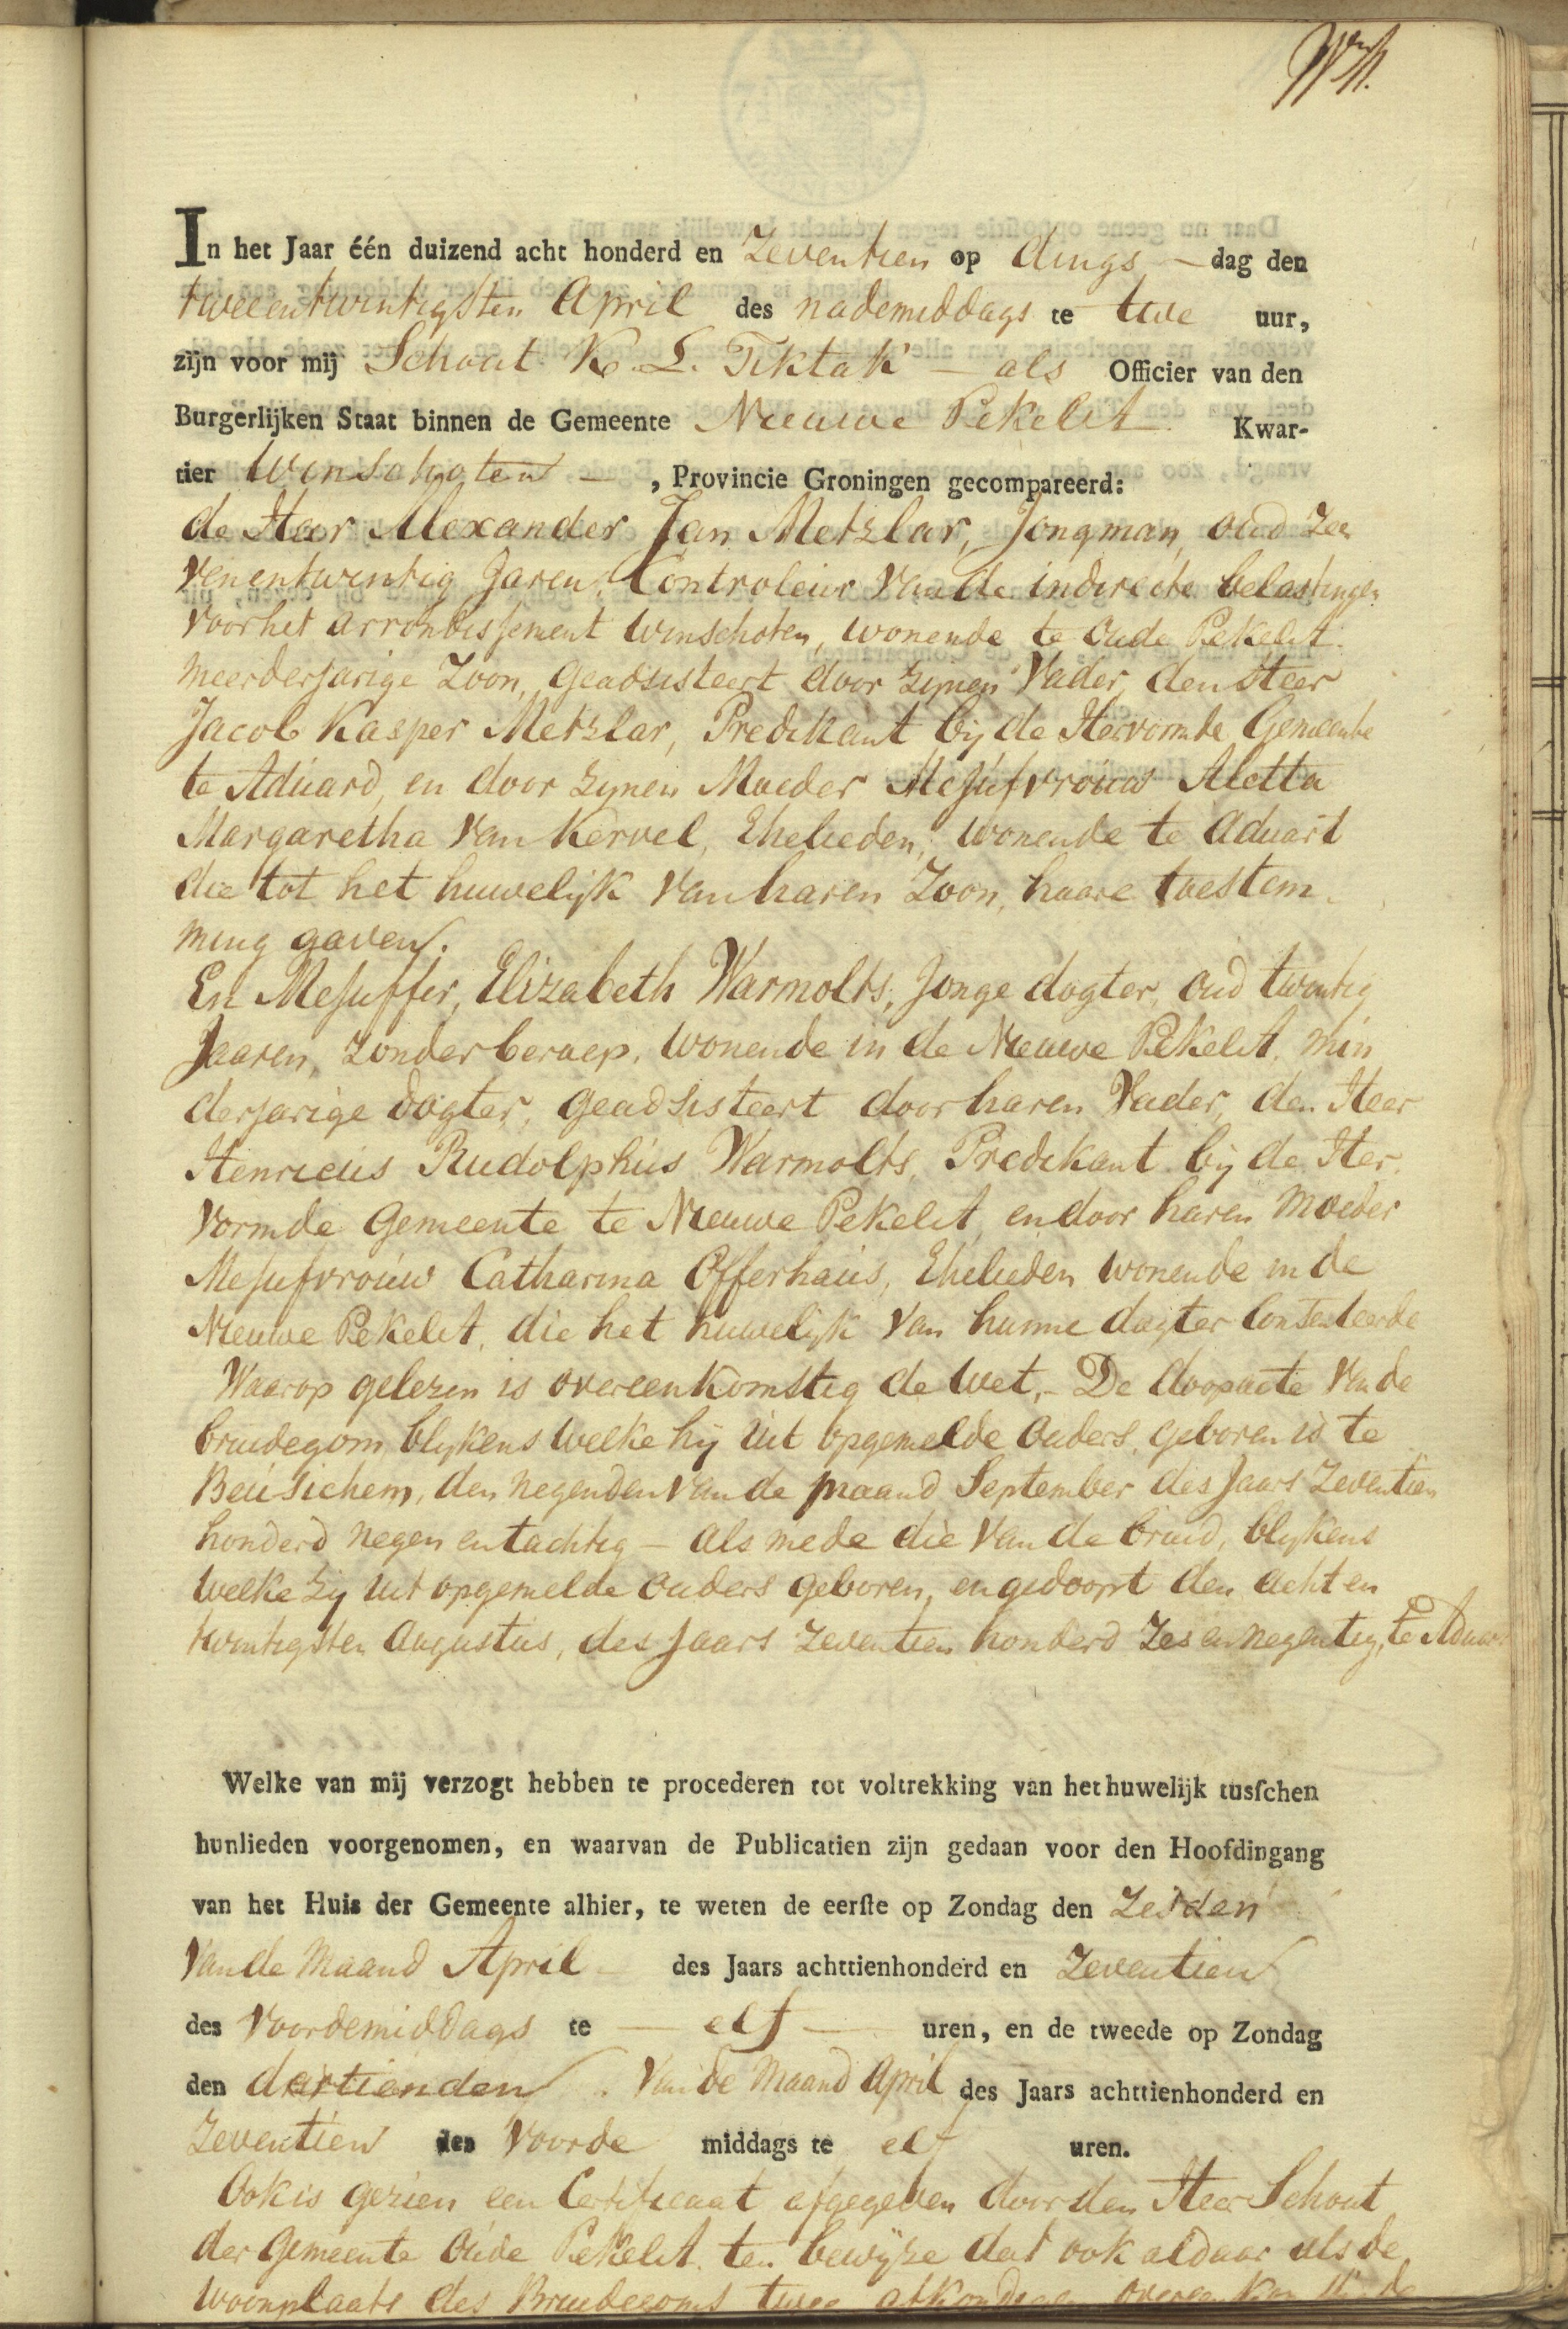 In het Jaar één duizend acht honderd en Zeventien op dings — dag den
tweeentwintigsten April des nademiddags te twe uur,
zijn voor mij Schout K. L. Tiktak — als Officier van den
Burgerlijken Staat binnen de Gemeente Nieuwe Pekel A Kwar-
tier Winschoten — , Provincie Groningen gecompareerd:
de Heer Alexander Jan Metzlar, Jongman, oud Zee
venentwintig Jaren, Controleur van de indirecte belastingen
voor het arrondissement Winschoten, wonende te Oude Pekel A
meerderjarige Zoon, geadsisteert door zynen Vader, den Heer
Jacob Kasper Metzlar, Predikant by de Hervormde Gemeente
te Aduard, en door zynen Moeder Mejufvrouw Aletta
Margaretha van Kervel, Ehelieden, wonende te Aduard
die tot het huwelijk van haren Zoon, haare toestem
ming gaven.
En Mejuffer, Elizabeth Warmolts, Jonge dogter, oud twentig
Jaaren, zonder beroep, wonende in de Nieuwe Pekel A, min
derjarige dogter, geadsisteert door haren Vader, den Heer
Henricus Rudolphus Warmolts, Predikant by de Her
vormde Gemeente te Nieuwe Pekel A, en door haren Moeder
Mejufvrouw Catharina Offerhaus, Ehelieden wonende in de
Nieuwe Pekel A, die het huwelijk van hunne dogter Consenteerde
Waarop gelezen is overeenkomstig de Wet, - De doopacte van de
bruidegom, blykens welke hij uit opgemelde ouders, geboren is te
Beusichem, den negenden van de maand September des Jaars Zeventien
honderd negen en tachtig — als mede die van de bruid, blykens
welke zy uit opgemelde ouders geboren, en gedoopt den acht en
twintigsten Augustus, des Jaars zeventien honderd Zes en negentig, te Aduard
Welke van mij verzogt hebben te procederen tot voltrekking van het huwelijk tusschen
hunlieden voorgenomen, en waarvan de Publicatien zijn gedaan voor den Hoofdingang
van het Huis der Gemeente alhier, te weten de eerste op Zondag den Zesden
van de Maand April des Jaars achttienhonderd en Zeventien
des Voordemiddags te — elf — uren, en de tweede op Zondag
den dartienden van de Maand April des Jaars achttienhonderd en
Zeventien des Voorde middags te elf uren.
Ook is gezien een Certificaat afgegeven door den Heer Schout
der Gemeente Oude Pekel A. ten bewyze dat ook aldaar als de
Woonplaats des Bruidegoms twee